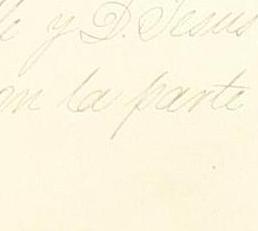 y D. Jesus
la parte